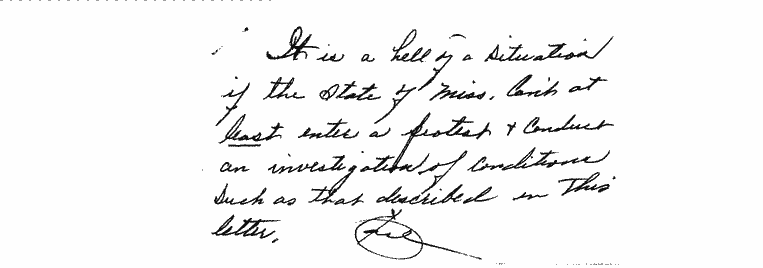 It is a hell of a situation
if the State of Miss. can't at
least enter a protest & conduct
an investigation of conditions
such as that described in this
letter.